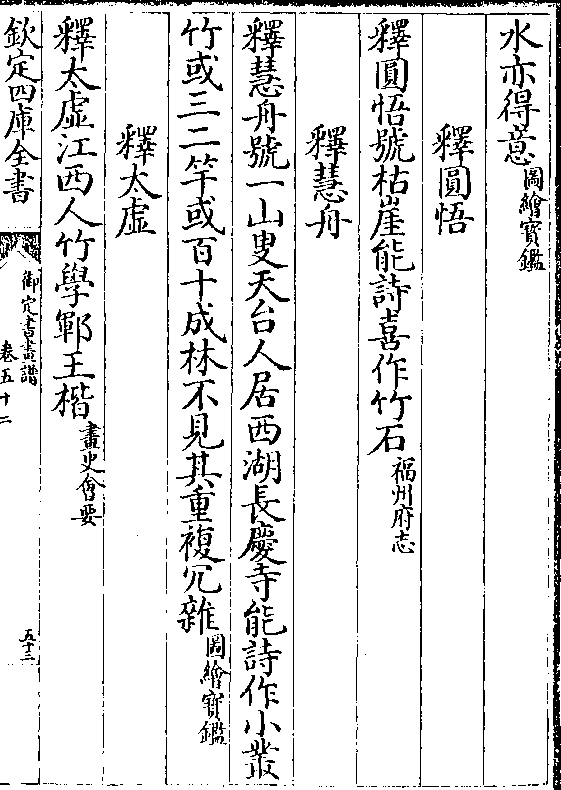 水亦得意圖繪寶鑑
釋圓悟
釋圓悟號枯崖能詩喜作竹石福州府志
釋慧舟
釋慧舟號一山叟天台人居西湖長慶寺能詩作小叢
竹或三二竿或百十成林不見其重複冗雜圖繪寶鑑
釋太虛
釋太虛江西人竹學鄆王楷畫史會要
欽定四庫全書
御定書畫譜
卷五十二
五十三